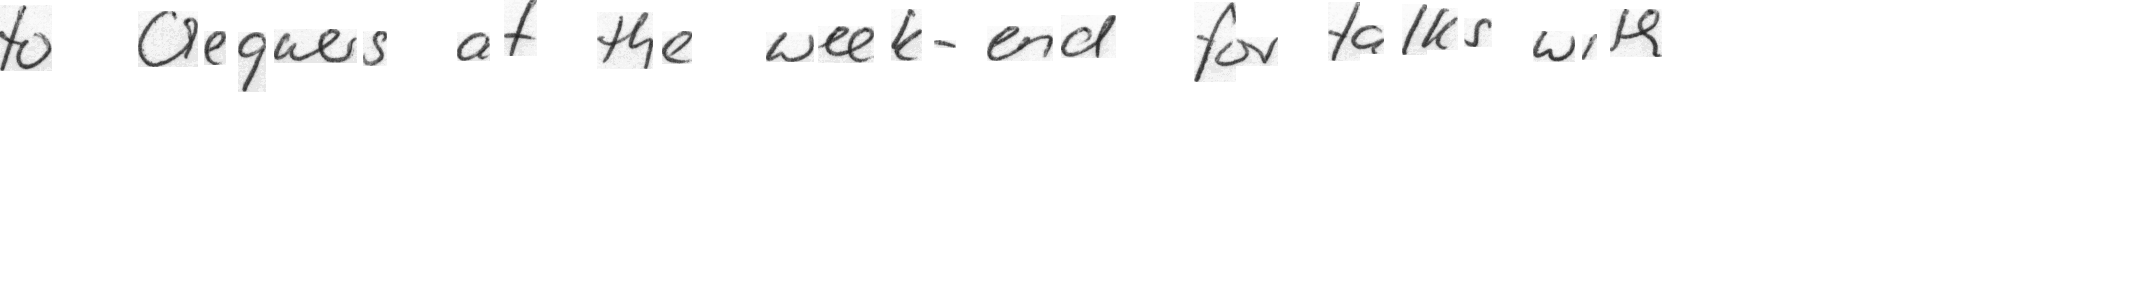 to Chequers at the week-end for talks with